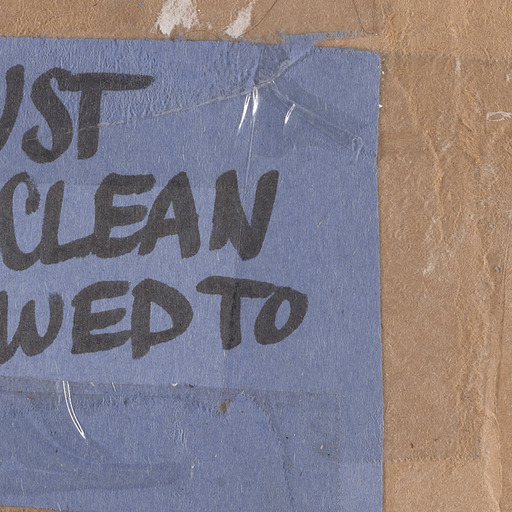 UST
CLEAN
WED TO